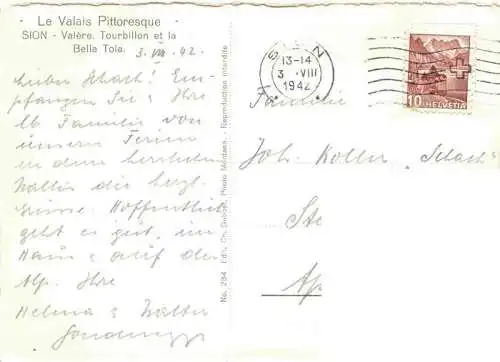 · Le Valais Pittoresque ·
SION - Valère. Tourbillon et la
Bella Tola.
3. VIII. 42.
Lieber Schach! Em-
pfangen Sie & Ihre
lb Familie von
unsern Ferien
in dem herrlichen
Wallis die herzl.
Grüsse. Hoffentlich
geht es gut, im
Haus & auf der
Alp. Ihre
Helena & Walter
No. 284 Edit. Ch. Photo Montana. - Reproduction interdite
SION
13-14
3 · VIII
1942
10 HELVETIA
Familie
Joh. Koller "Schach"
Ste
Ap